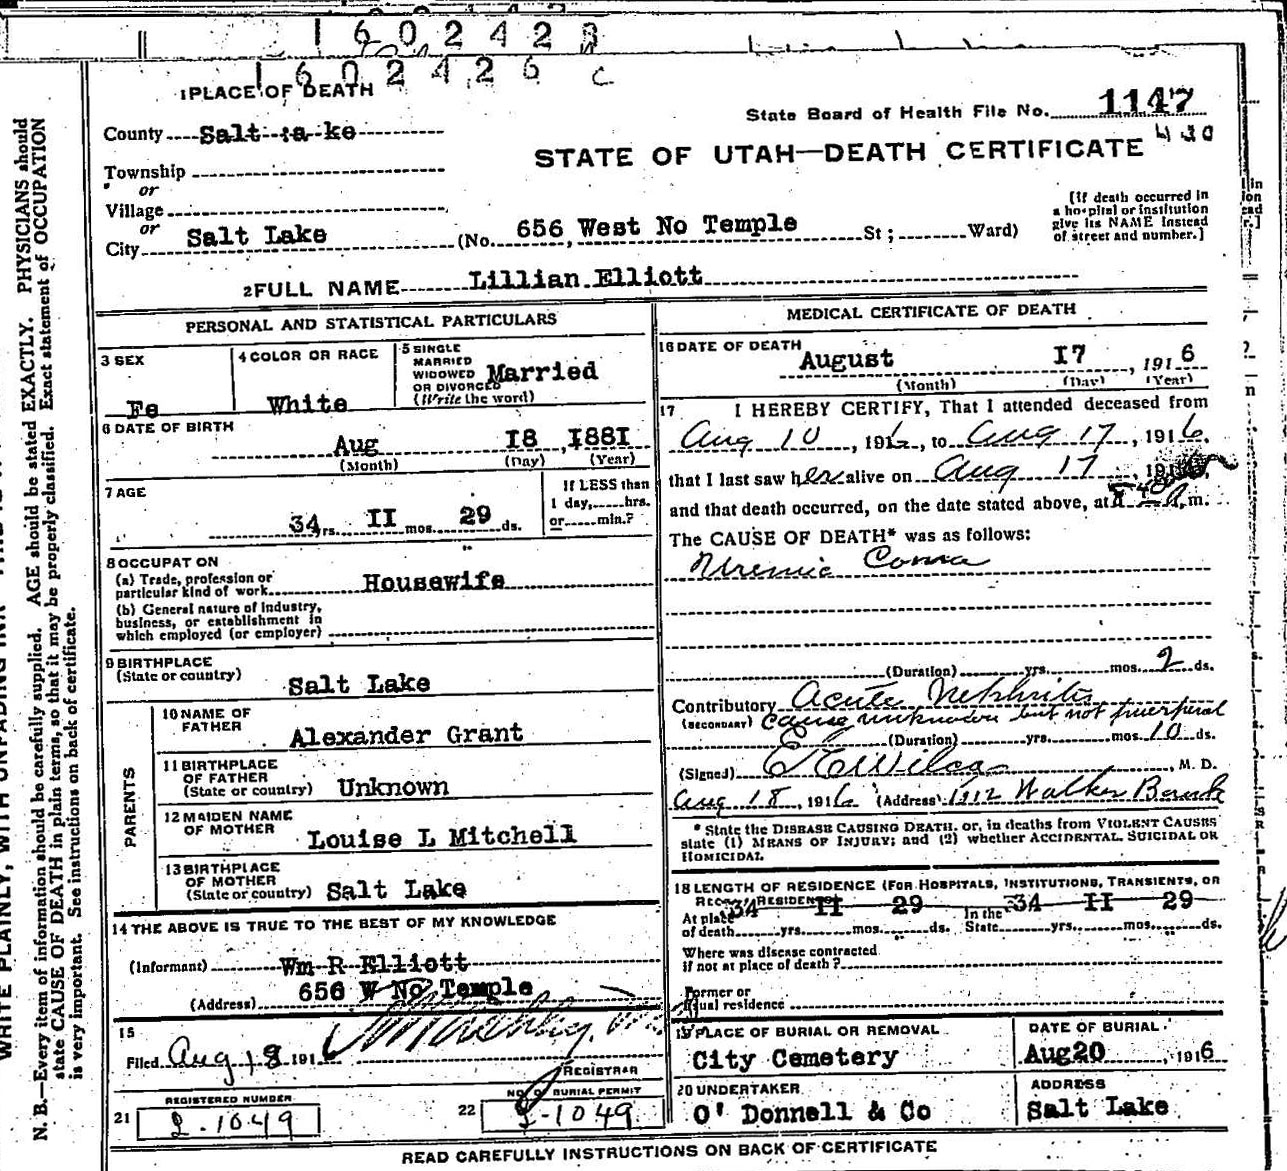 1602423
1602426 C
1 PLACE OF DEATH
State Board of Health File No. 1147
County Salt :a ke
430
STATE OF UTAH—DEATH CERTIFICATE
Township
or
Village
or
City Salt Lake (No. 656 West No Temple St; Ward)
[If death occurred in a hospital or institution give its NAME instead of street and number.]
2 FULL NAME Lillian Elliott
PERSONAL AND STATISTICAL PARTICULARS
3 SEX Fe
4 COLOR OR RACE White
5 SINGLE MARRIED WIDOWED OR DIVORCED (Write the word) Married
6 DATE OF BIRTH
Aug I8, I88I
(Month) (Day) (Year)
7 AGE
34 yrs. II mos. 29 ds.
If LESS than 1 day, hrs. or min.?
8 OCCUPAT ON
(a) Trade, profession or particular kind of work Housewife
(b) General nature of industry, business, or establishment in which employed (or employer)
9 BIRTHPLACE
(State or country) Salt Lake
PARENTS
10 NAME OF FATHER Alexander Grant
11 BIRTHPLACE OF FATHER (State or country) Unknown
12 MAIDEN NAME OF MOTHER Louise L Mitchell
13 BIRTHPLACE OF MOTHER (State or country) Salt Lake
14 THE ABOVE IS TRUE TO THE BEST OF MY KNOWLEDGE
(Informant) Wm R Elliott
(Address) 656 W No Temple
15
Filed Aug 18 1916
REGISTRAR
REGISTERED NUMBER
21 2-1049
NO. OF BURIAL PERMIT
22 2-1049
MEDICAL CERTIFICATE OF DEATH
16 DATE OF DEATH
August I7, 1916
(Month) (Day) (Year)
17 I HEREBY CERTIFY, That I attended deceased from
Aug 10, 1916, to Aug 17, 1916,
that I last saw her alive on Aug 17, 191
and that death occurred, on the date stated above, at m.
The CAUSE OF DEATH* was as follows:
Uremic Coma
(Duration) yrs. mos. 2 ds.
Contributory Acute Nephritis
(SECONDARY) cause unknown but not puerperal
(Duration) yrs. mos. 10 ds.
(Signed) E E Wilcox, M. D.
Aug 18, 1916 (Address) 1212 Walker Bank
* State the DISEASE CAUSING DEATH, or, in deaths from VIOLENT CAUSES
state (1) MEANS OF INJURY; and (2) whether ACCIDENTAL, SUICIDAL OR
HOMICIDAL.
18 LENGTH OF RESIDENCE (FOR HOSPITALS, INSTITUTIONS, TRANSIENTS, OR
RECENT RESIDENTS)
At place of death 34 yrs. II mos. 29 ds. In the State 34 yrs. II mos. 29 ds.
Where was disease contracted
if not at place of death?
Former or
usual residence
19 PLACE OF BURIAL OR REMOVAL
City Cemetery
DATE OF BURIAL
Aug20, 1916
20 UNDERTAKER
O' Donnell & Co
ADDRESS
Salt Lake
READ CAREFULLY INSTRUCTIONS ON BACK OF CERTIFICATE
N. B.—Every item of information should be carefully supplied. AGE should be stated EXACTLY. PHYSICIANS should
state CAUSE OF DEATH in plain terms, so that it may be properly classified. Exact statement of OCCUPATION
is very important. See instructions on back of certificate.
WRITE PLAINLY, WITH UNFADING INK